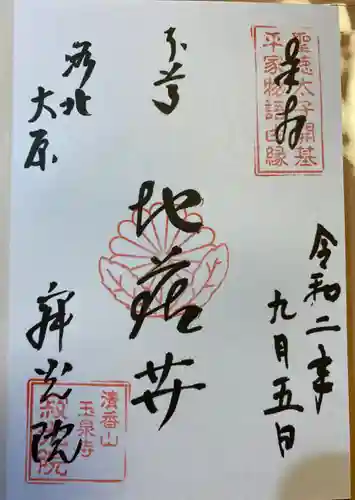 奉拝
聖徳太子開基
平家物語由縁
令和二年
九月五日
本尊
地蔵尊
洛北
大原
寂光院
清香山
玉泉寺
寂光院